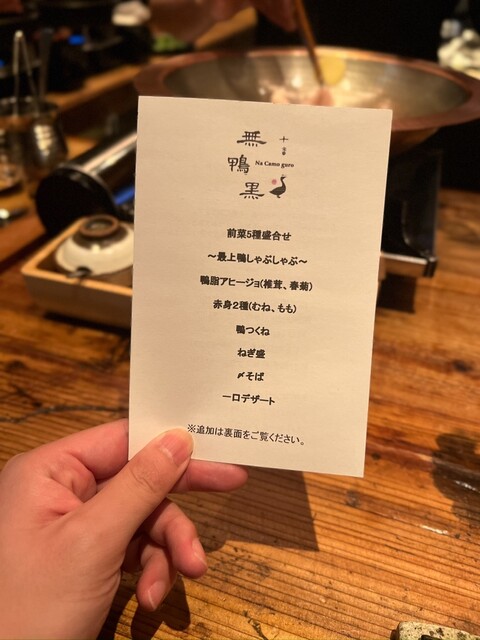 無
鴨 Na Camo guro
黒
前菜5種盛合せ
~最上鴨しゃぶしゃぶ~
鴨脂アヒージョ(椎茸、春菊)
赤身2種(むね、もも)
鴨つくね
ねぎ盛
〆そば
一口デザート
※追加は裏面をご覧ください。